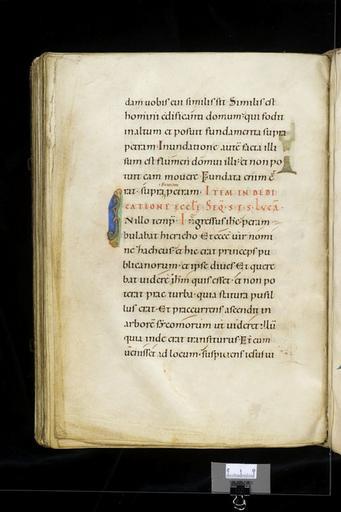 dam uobis cui similis sit Similis est
homini edificanti domum qui fodit
in altum et posuit fundamenta supra
petram Inundatione autē facta illi
sum est flumen domui illi et non po
tuit eam mouere Fundata enim ē
rat supra petram. ITEM IN DEDI
CATIONE ECCLE SEQ. S. E. S. LUCA.
In illo temp Ingressus ihc peram
bulabat hiericho Et ecce uir nomi
ne Zacheus et hic erat princeps pu
blicanorum et ipse diues Et quere
bat uidere ihm quis esset et non po
terat prae turba quia statura pusil
lus erat Et praecurrens ascendit in
arborē sycomorum ut uideret illū
quia inde erat transiturus Et cum
uenisset ad locum suspiciens iesus ui